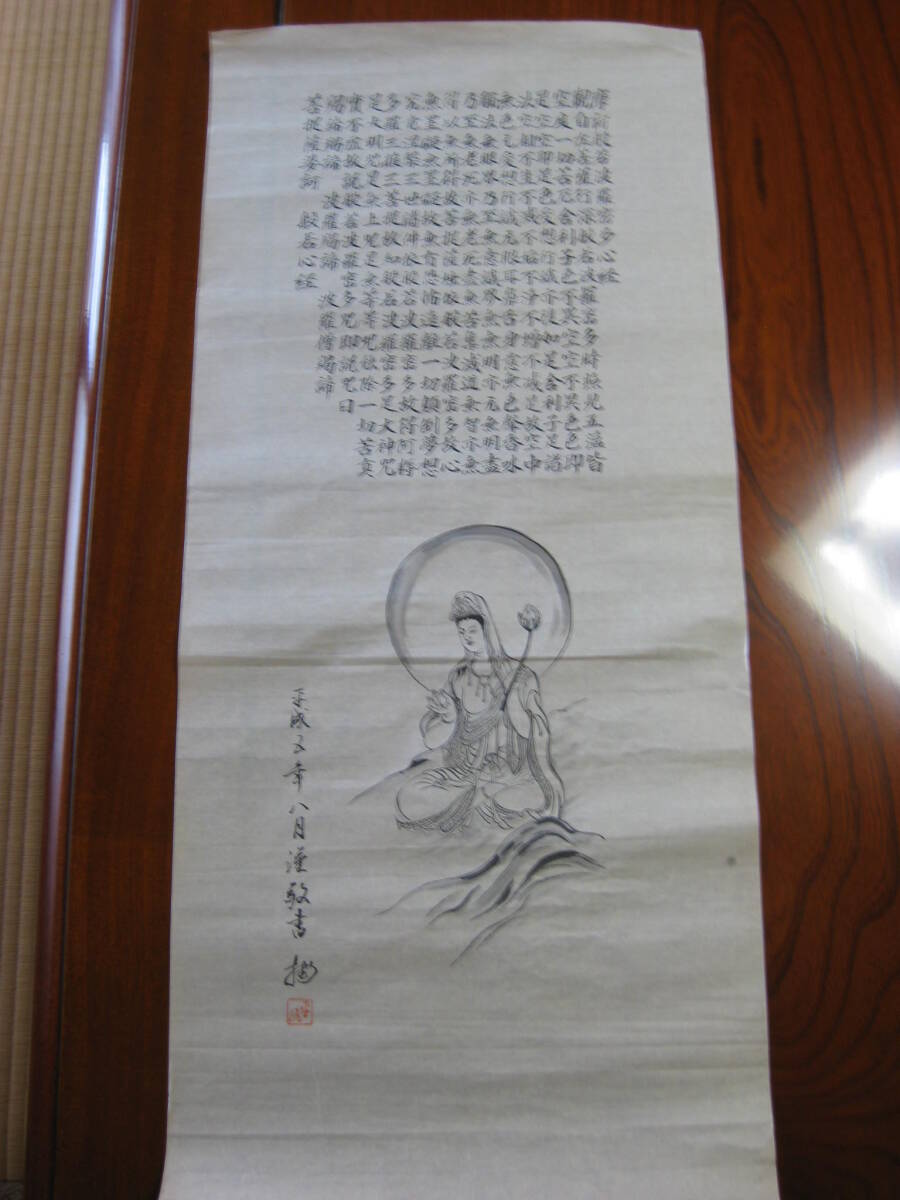 摩訶般若波羅蜜多心経
觀自在菩薩行深般若波羅蜜多時照見五蘊皆
空度一切苦厄舎利子色不異空空不異色色即
是空空即是色受想行識亦復如是舎利子是諸
法空相不生不滅不垢不浄不増不減是故空中
無色无受想行識无眼耳鼻舌身意無色聲香味
觸法無眼界乃至無意識界無無明亦无無明盡
乃至無老死亦無老死盡無苦集滅道無智亦無
得以無所得故菩提薩埵依般若波羅蜜多故心
無罣礙無罣礙故無有恐怖遠離一切顛倒夢想
究竟涅槃三世諸佛依般若波羅蜜多故得阿耨
多羅三藐三菩提故知般若波羅蜜多是大神咒
是大明咒是無上咒是無等等咒能除一切苦真
實不虚故説般若波羅蜜多咒即説咒曰
羯諦羯諦 波羅羯諦 波羅僧羯諦
菩提薩婆訶 般若心経
平成五年八月謹敬書 描